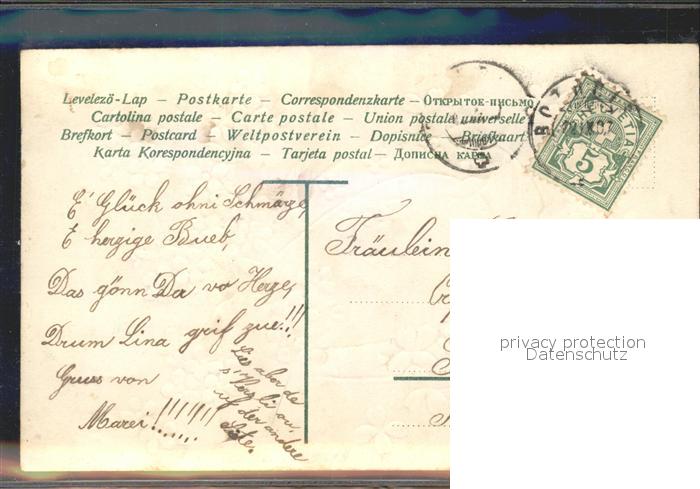 Levelező-Lap – Postkarte – Correspondenzkarte – Открытое-письмо
Cartolina postale – Carte postale – Union postale universelle
Brefkort – Postcard – Weltpostverein – Dopisnice – Briefkaart
Karta Korespondencyjna – Tarjeta postal – Дописна карта
E' Glück ohni Schmärze,
E herzige Bueb,
Das gönn Da vo Herze,
Drum Lina grif zue!!!
Gruss von
Marei!!!!!!!
Läs abor de
s'Värsli ou,
uf der andere
Site.
Fräulein
HELVETIA
5
privacy protection
Datenschutz